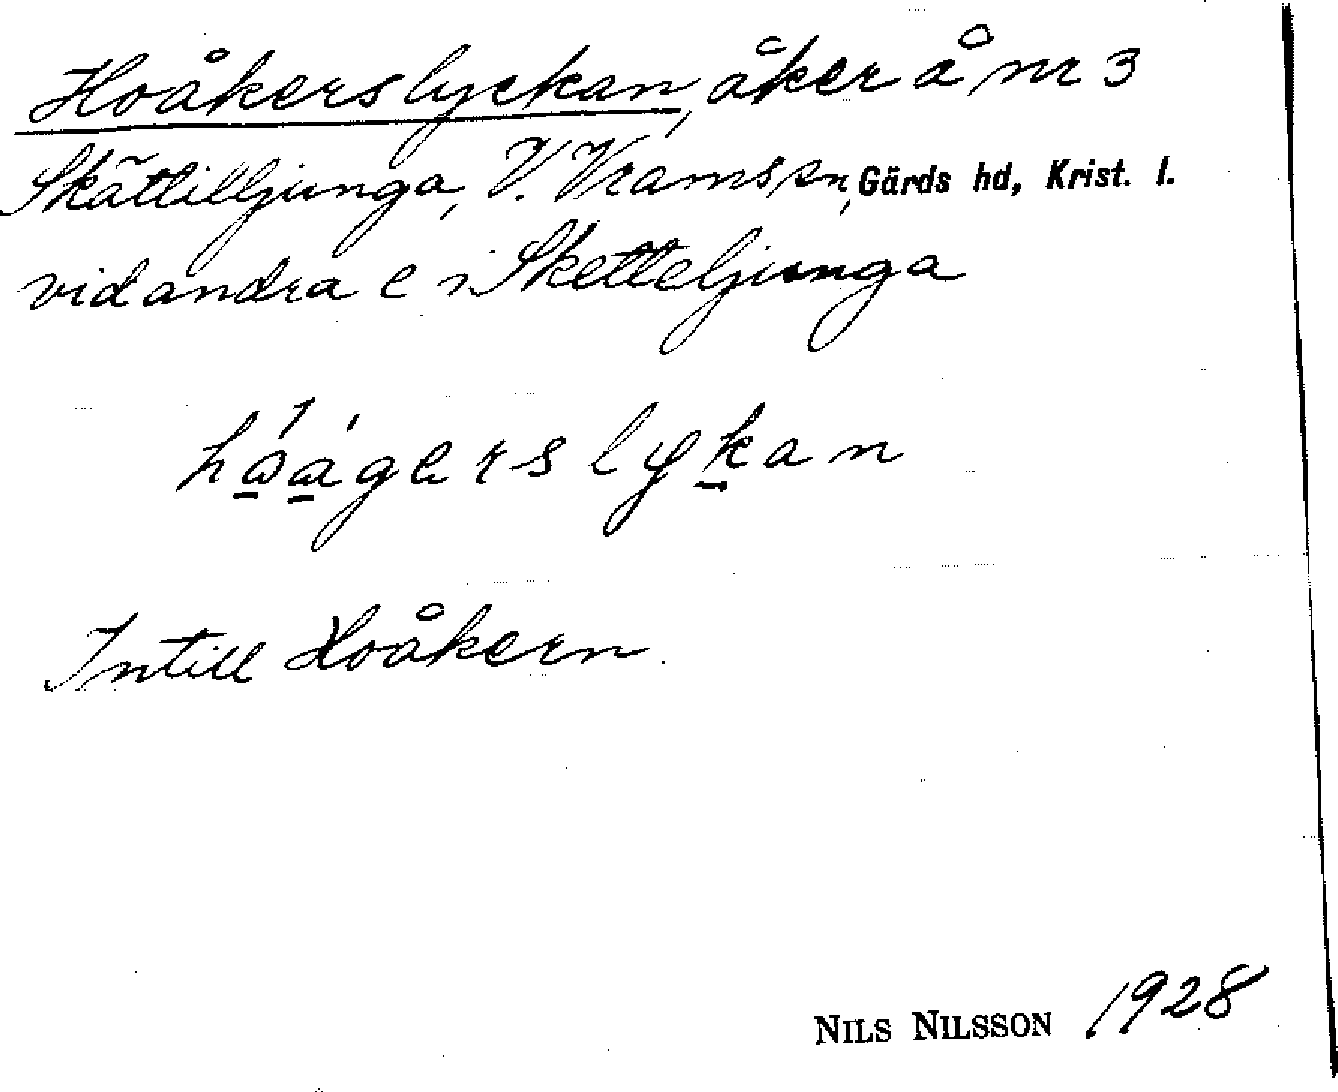 Hoåkerslyckan, åker å nr 3
Skättilljunga, V. Vrams sn, Gärds hd, Krist. l.
vid andra e i Sketteljunga
håågerslykan
Intill Hoåkern.
NILS NILSSON 1928